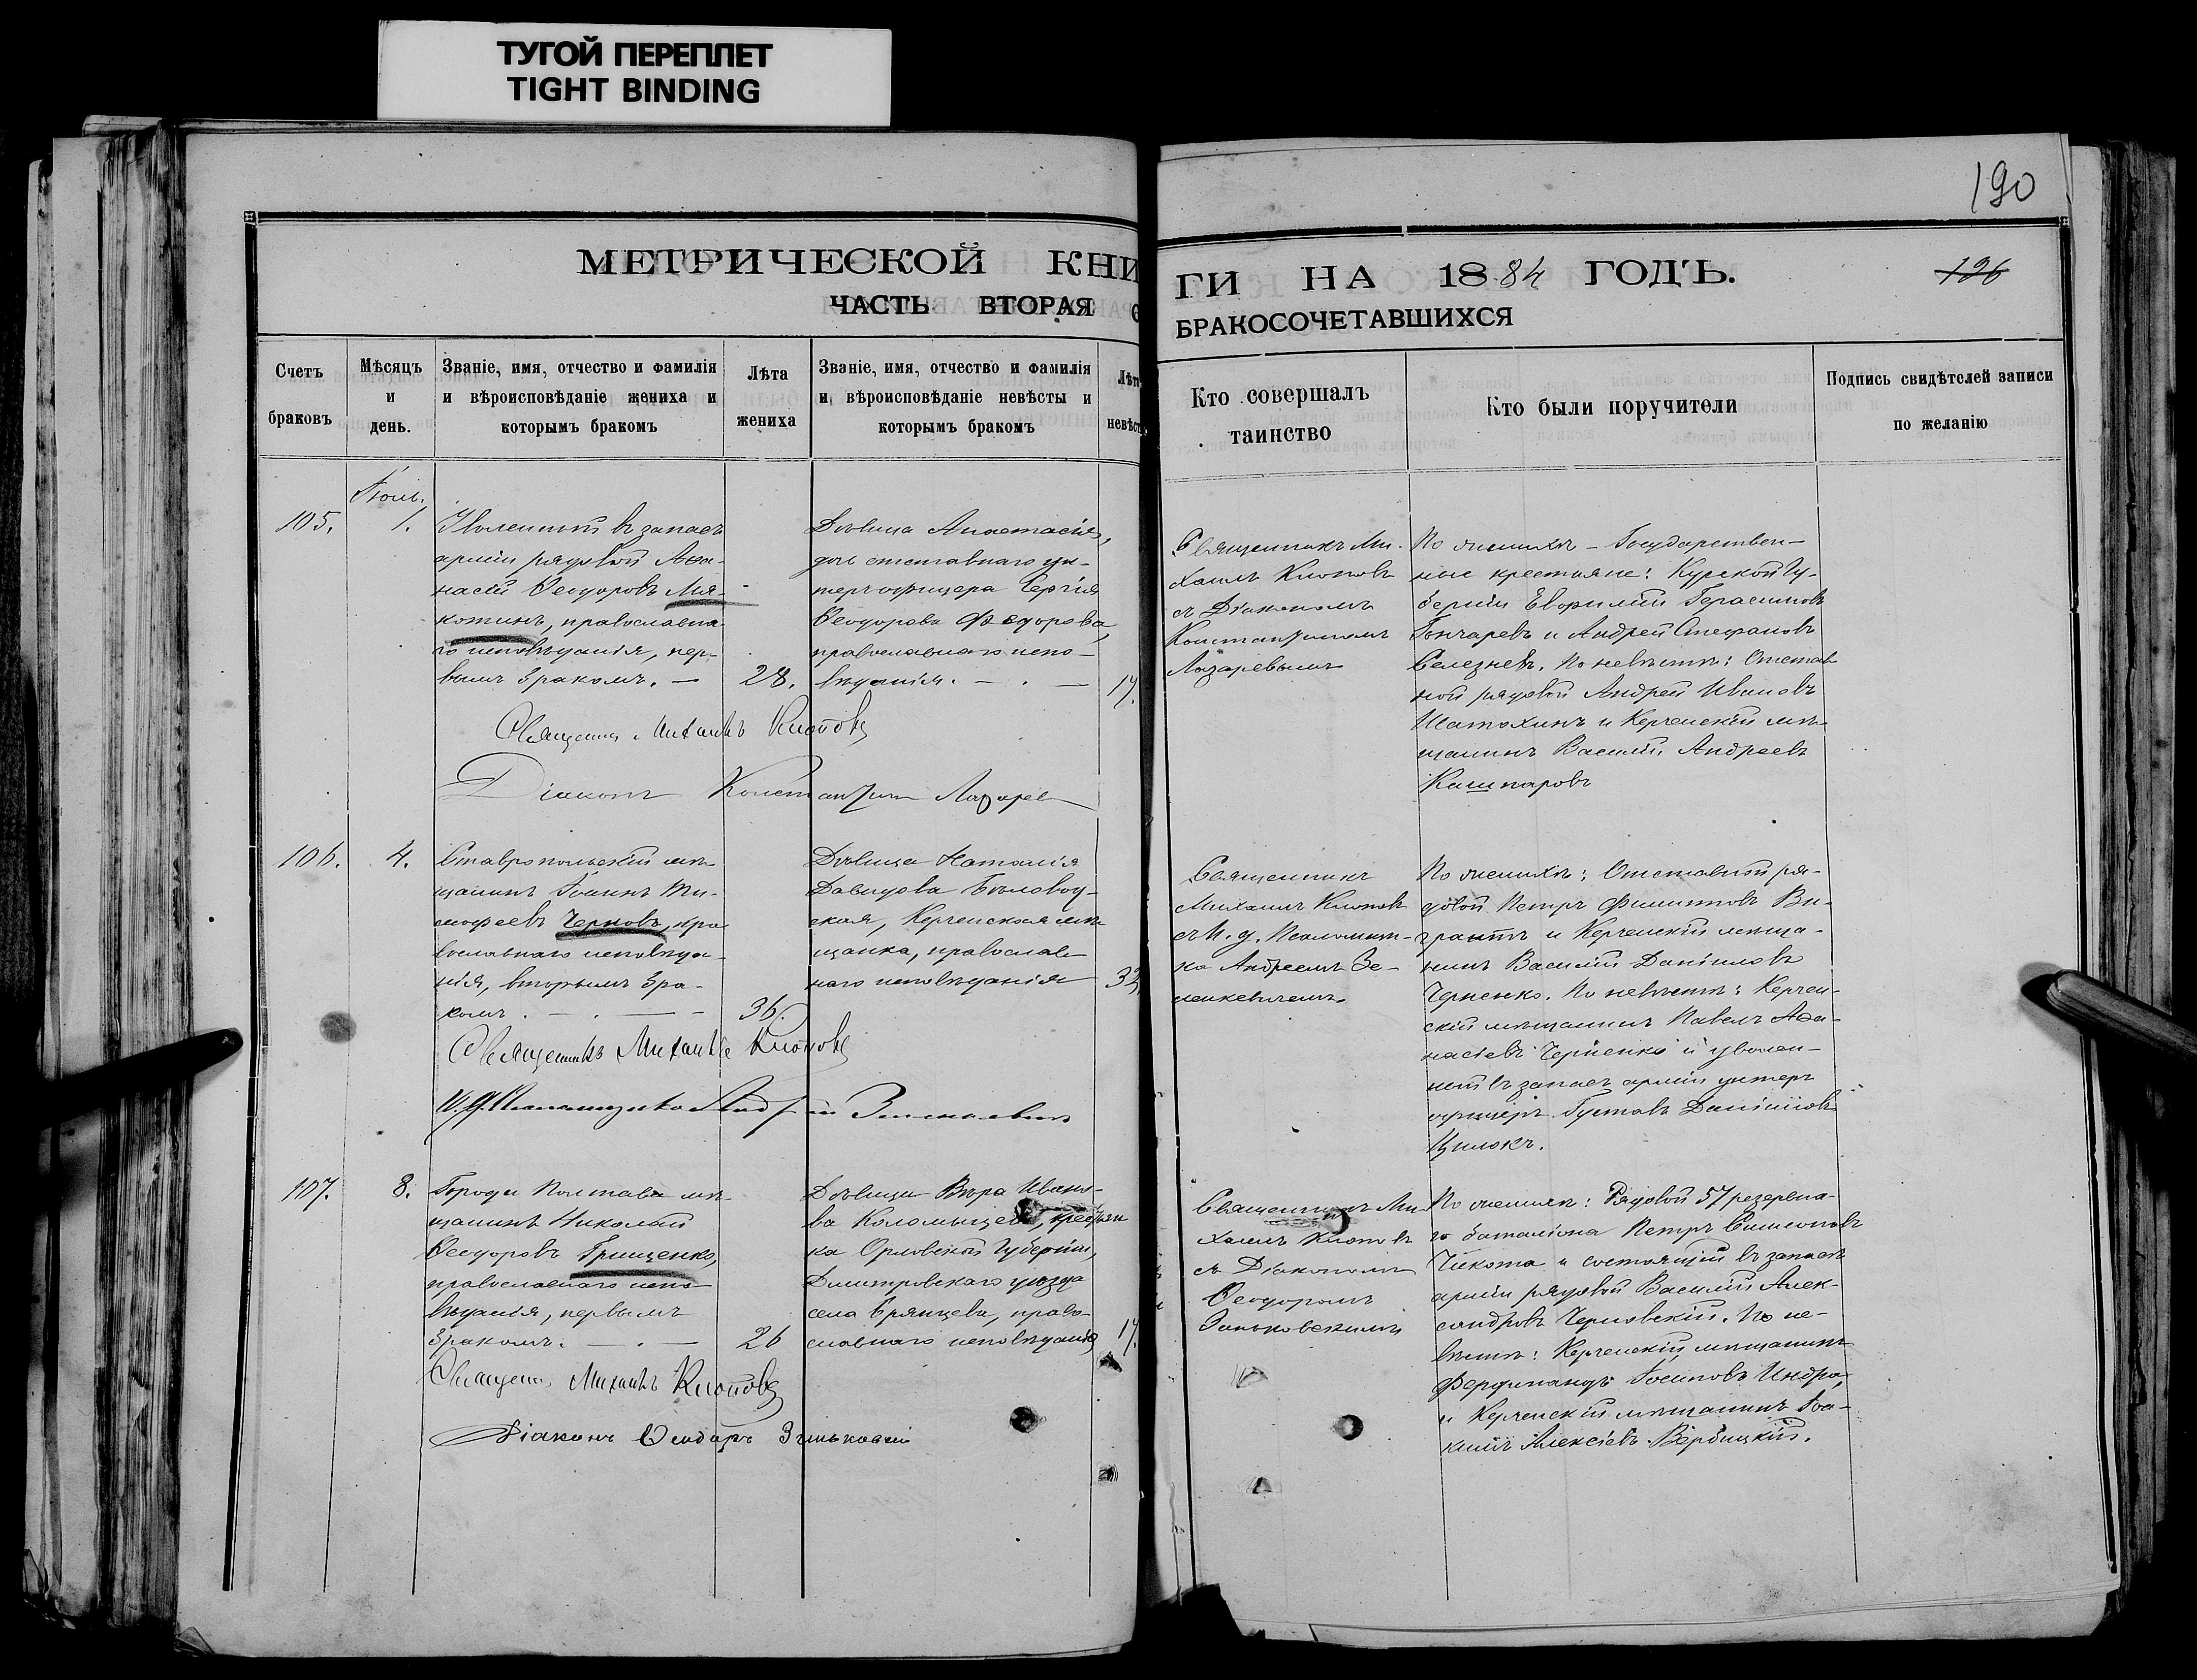 ТУГОЙ ПЕРЕПЛЕТ
TIGHT BINDING
190
МЕТРИЧЕСКОЙ КНИ
ГИ НА 1884 ГОДЪ.
126
ЧАСТЬ ВТОРАЯ
БРАКОСОЧЕТАВШИХСЯ
Счетъ
браковъ
Мѣсяцъ
и
день.
Званіе, имя, отчество и фамилія
и вѣроисповѣданіе жениха и
которымъ бракомъ
Лѣта
жениха
Званіе, имя, отчество и фамилія
и вѣроисповѣданіе невѣсты и
которымъ бракомъ
Лѣта
невѣс
Кто совершалъ
таинство
Кто были поручители
Подпись свидѣтелей записи
по желанію
105.
Іюль.
1.
Уволенный въ запасъ
арміи рядовой Аѳа-
насій Ѳеодоровъ Мя-
котинъ, православна
го исповѣданія, пер-
вымъ бракомъ. —
28.
Дѣвица Анастасія,
дочь отставнаго ун-
теръ офицера Сергія
Ѳеодорова Федорова,
православнаго испо-
вѣданія. — . —
17.
Священникъ Михаилъ Клоповъ
Діаконъ Константинъ Лазарев
Священникъ Ми-
хаилъ Клоповъ
съ Діакономъ
Константиномъ
Лазаревымъ
По женихѣ — Государствен-
ные крестьяне: Курской Гу-
берніи Евфимій Герасимовъ
Гончаревъ и Андрей Стефановъ
Селезневъ. По невѣстѣ: Отстав
ной рядовой Андрей Ивановъ
Шатохинъ и Керченскій мѣ-
щанинъ Василій Андреевъ
Кашпаровъ
106.
4.
Ставропольскій мѣ-
щанинъ Іоаннъ Ти-
мофеевъ Черновъ, пра
вославнаго исповѣда-
нія, вторымъ бра-
комъ. — . — -
36.
Дѣвица Наталія
Давидова Бѣловод-
ская, Керченская мѣ
щанка, православ-
наго исповѣданія
33
Священникъ Михаилъ Клоповъ
И. д. Псаломщика Андрей Зенкевич
Священникъ
Михаилъ Клоповъ
съ И. д. Псаломщи-
ка Андреемъ Зе-
нкевичемъ.
По женихѣ: Отставной ря-
довой Петръ Филипповъ Ви-
грантъ и Керченскій мѣща-
нинъ Василій Даніиловъ
Черненко. По невѣстѣ: Керчен-
скій мѣщанинъ Павелъ Аѳа-
насіевъ Черненко и уволен-
ный въ запасъ арміи унтеръ
офицеръ Густавъ Даніиловъ
Цилокъ.
107.
8.
Города Полтавы мѣ-
щанинъ Николай
Ѳеодоровъ Грищенко,
православнаго испо-
вѣданія, первымъ
бракомъ. — . —
26
Дѣвица Вѣра Ивано-
ва Коломыцева, крестьян
ка Орловской Губерніи,
Дмитровскаго уѣзда
села Брянцева, право-
славнаго исповѣданія
17.
Священникъ Михаилъ Клоповъ
Діаконъ Ѳеодоръ Зѣньковскій
Священникъ Ми-
хаилъ Клоповъ
съ Діакономъ
Ѳеодоромъ
Зѣньковскимъ
По женихѣ: Рядовой 57 резервна-
го баталіона Петръ Симеоновъ
Чикота и состоящій въ запасѣ
арміи рядовой Василій Алек-
сандровъ Черновскій. По не-
вѣстѣ: Керченскій мѣщанинъ
Фердинандъ Іосиповъ Индра,
и Керченскій мѣщанинъ Іоа-
кимъ Алексіевъ Вербицкій.